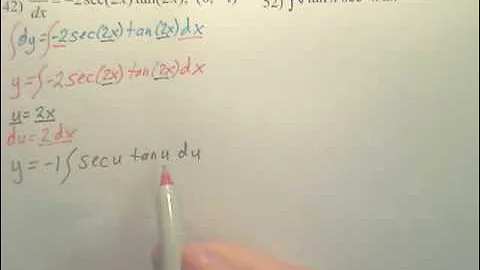 42) dy/dx = -2sec(2x)tan(2x), 52) ∫
∫dy = ∫-2sec(2x)tan(2x)dx
y = ∫-2sec(2x) tan(2x)dx
u = 2x
du = 2dx
y = -1∫ sec u tan u du